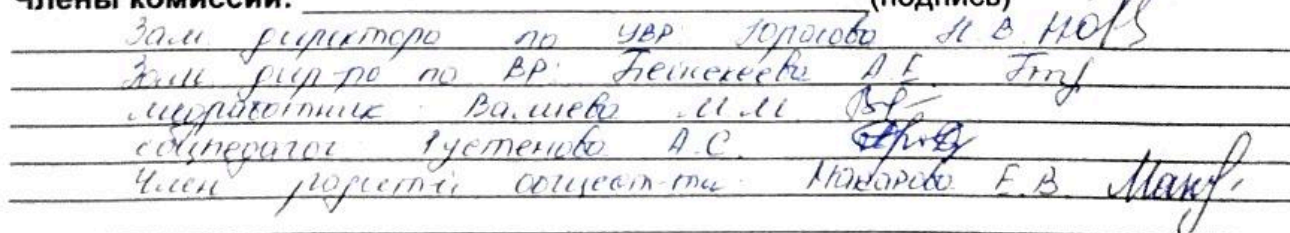 Члены комиссии: ____________ (подпись)
Зам директора по УВР Юрасова Н.В.
Зам дир-ра по ВР: Бейсекеева А.Е.
медработник Валиева М.М.
соцпедагог Кустенова А.С.
Член родител общест-ти Макарова Е.В.